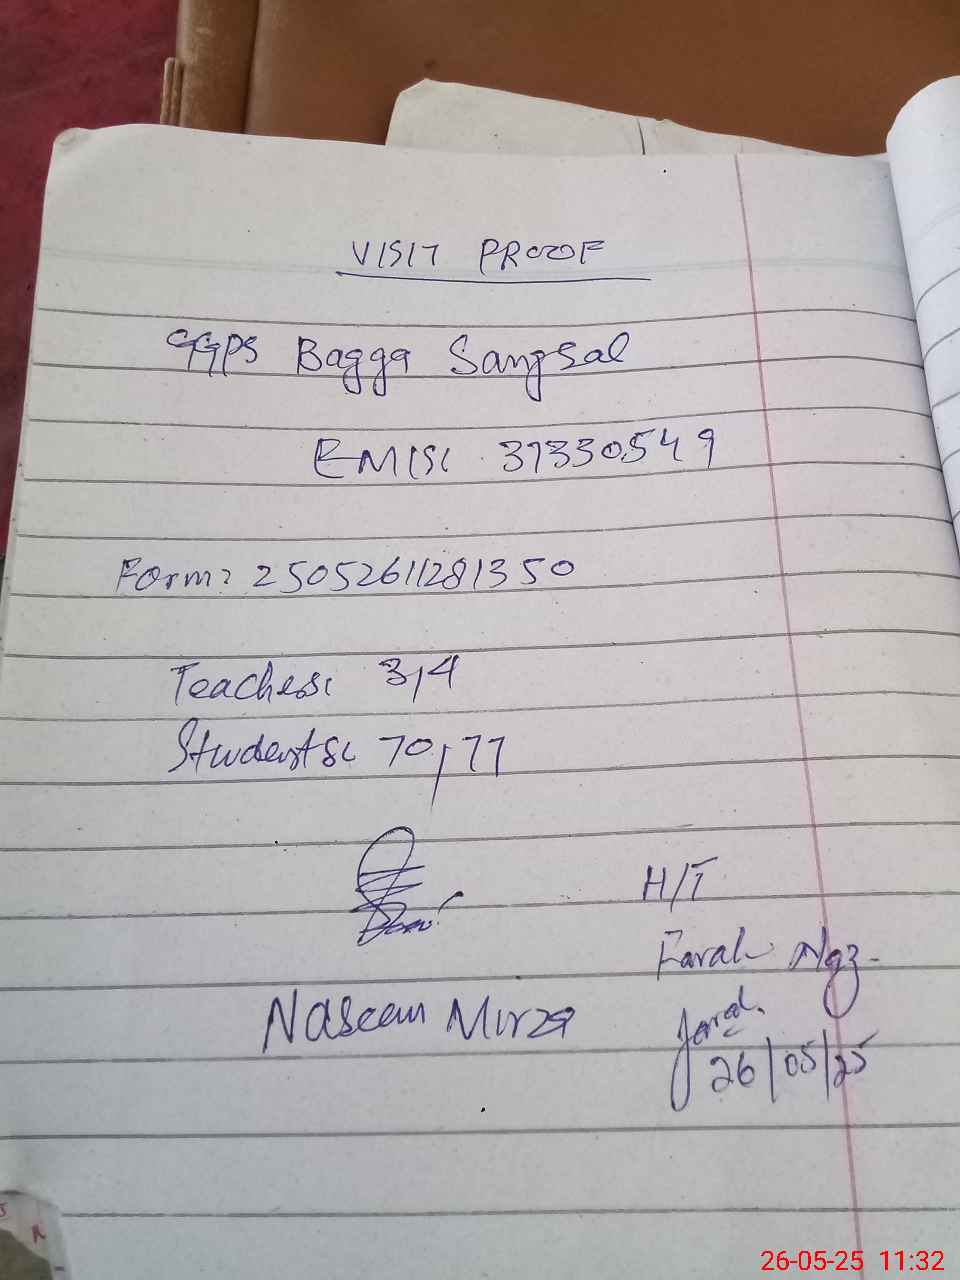 VISIT PROOF
GGPS Bagga Sangsal
EMIS: 37330549
Form: 25052611281350
Teachers: 3,4
Students: 70,77
H/T
Farah Naz
Naseem Mirza
26/05/25
26-05-25 11:32